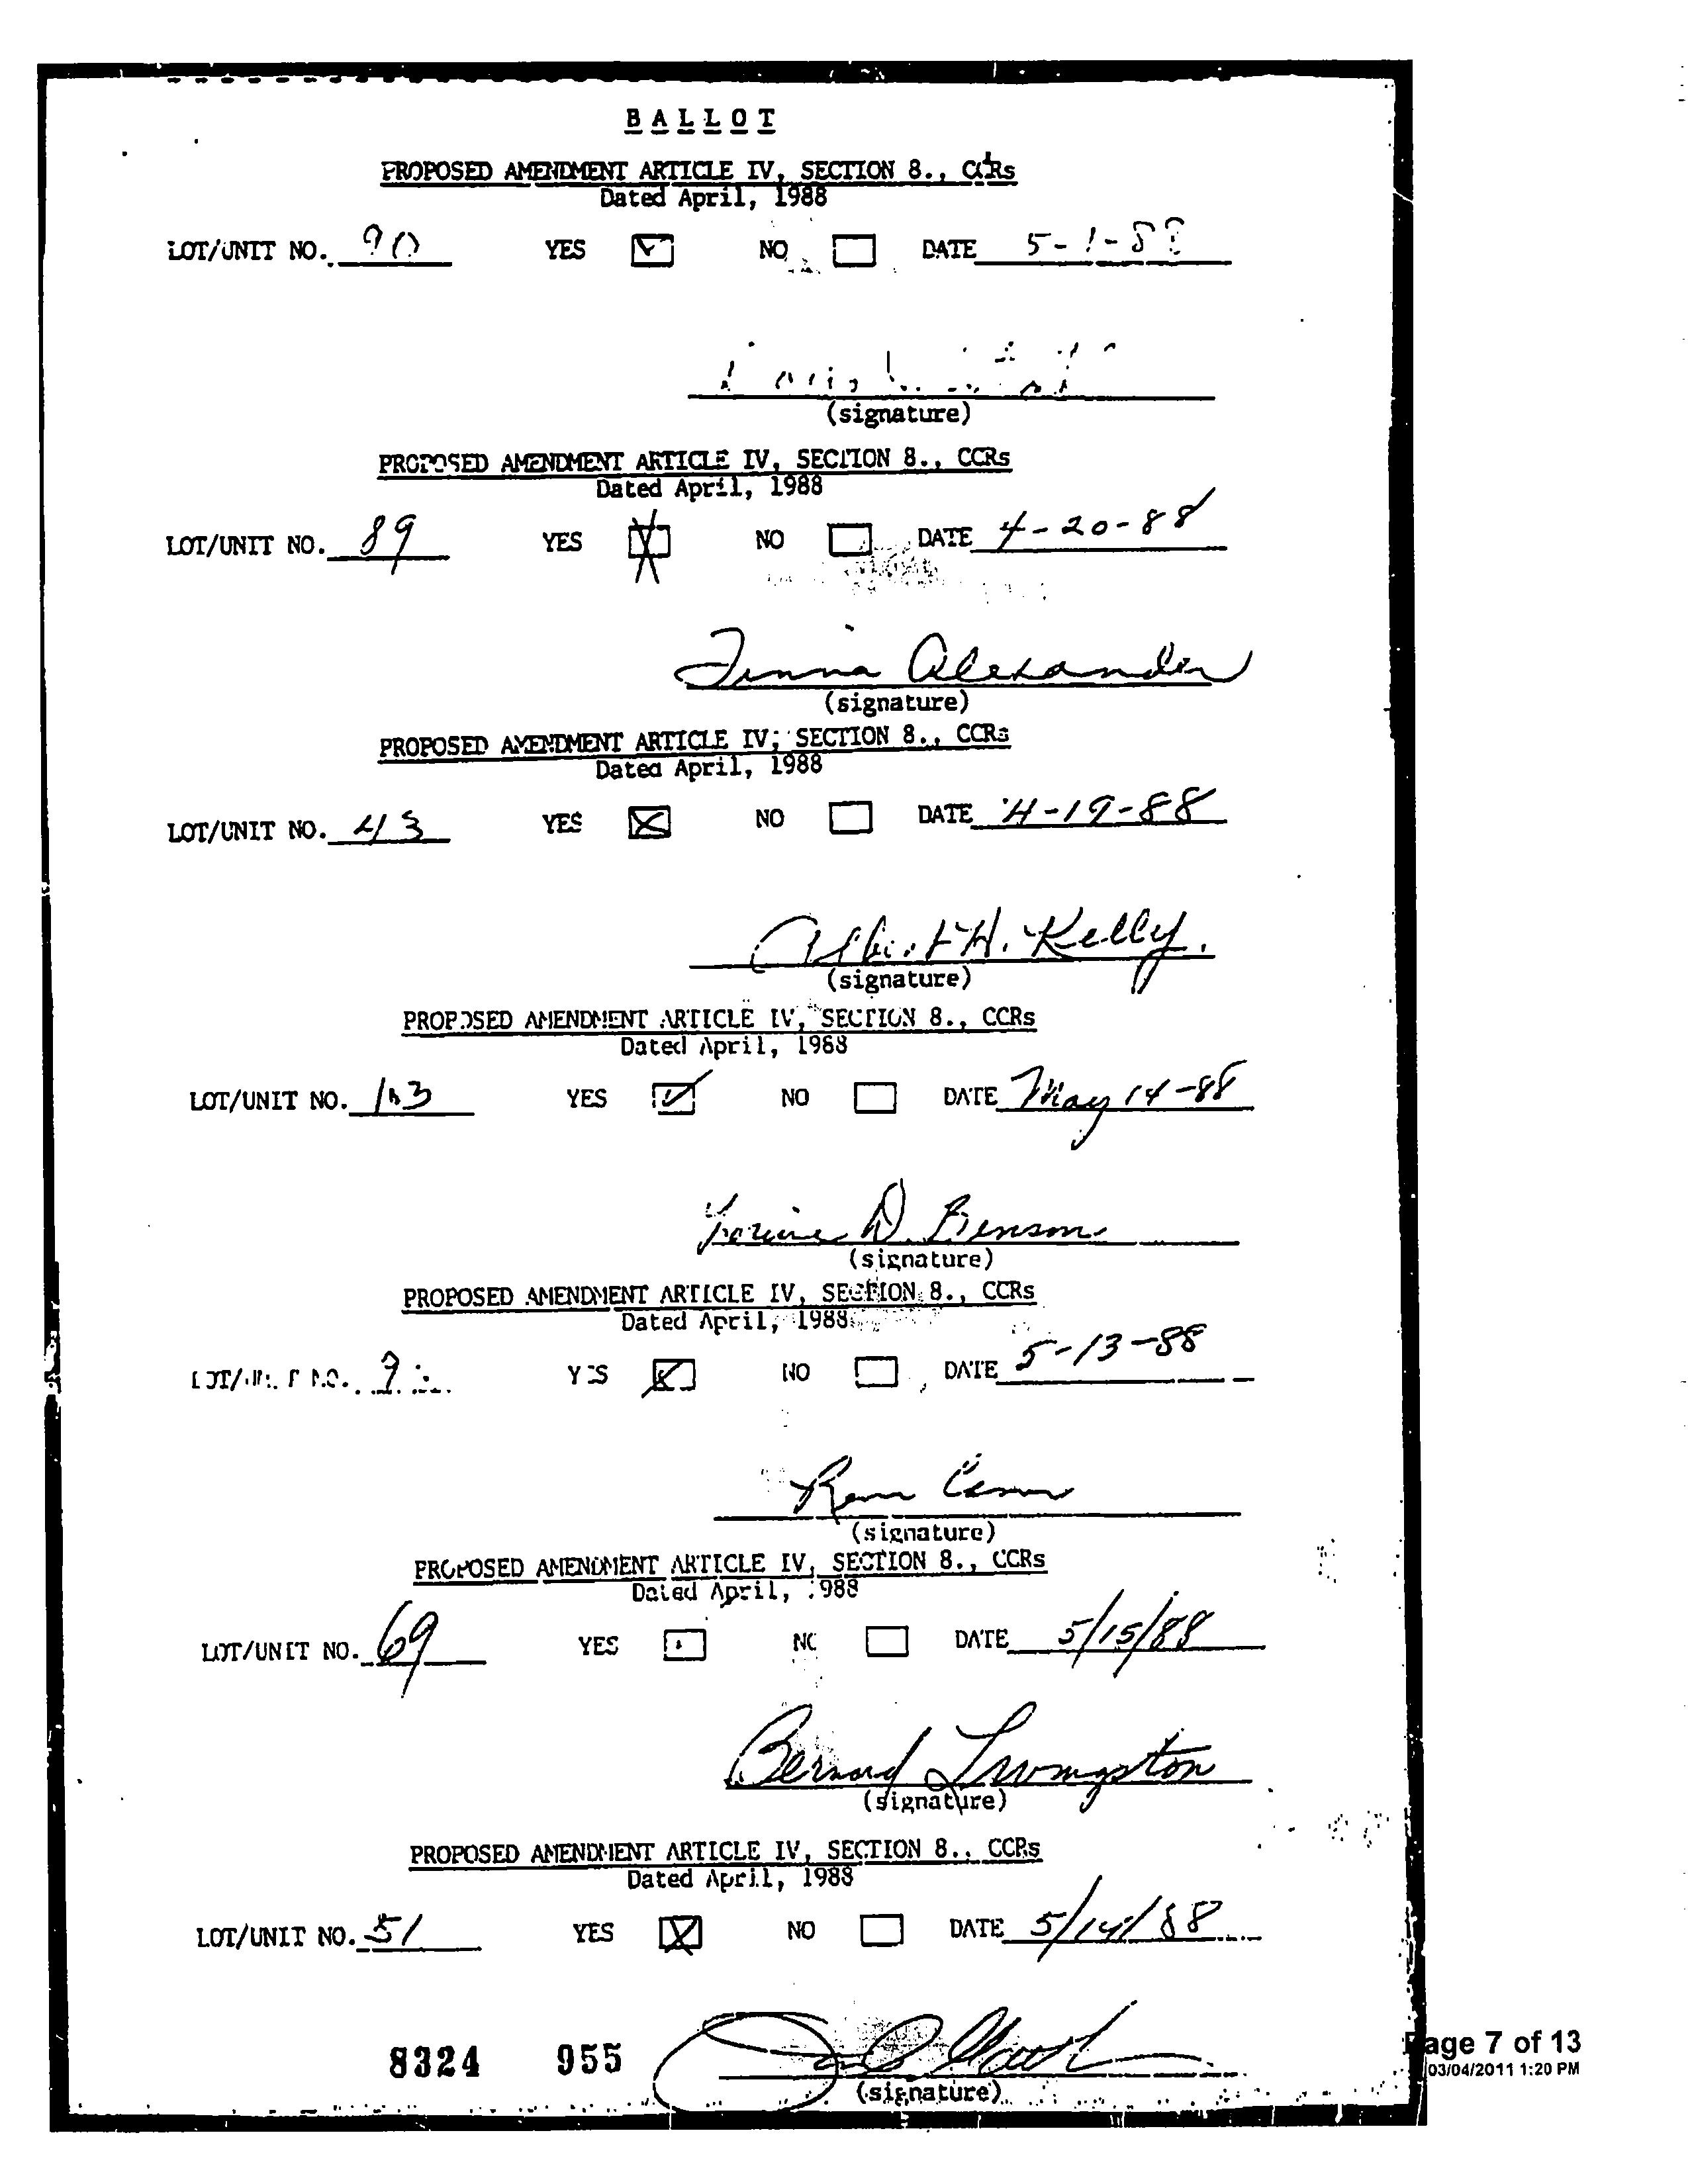 BALLOT
PROPOSED AMENDMENT ARTICLE IV, SECTION 8., CCRs
Dated April, 1988
LOT/UNIT NO. 90 YES NO DATE 5-1-88
(signature)
PROPOSED AMENDMENT ARTICLE IV, SECTION 8., CCRs
Dated April, 1988
LOT/UNIT NO. 89 YES NO DATE 4-20-88
Alexander
(signature)
PROPOSED AMENDMENT ARTICLE IV, SECTION 8., CCRs
Dated April, 1988
LOT/UNIT NO. 43 YES NO DATE 4-19-88
Albert H. Kelly.
(signature)
PROPOSED AMENDMENT ARTICLE IV, SECTION 8., CCRs
Dated April, 1988
LOT/UNIT NO. YES NO DATE May 14-88
D. Benson
(signature)
PROPOSED AMENDMENT ARTICLE IV, SECTION 8., CCRs
Dated April, 1988
LOT/UNIT NO. YES NO DATE 5-13-88
(signature)
PROPOSED AMENDMENT ARTICLE IV, SECTION 8., CCRs
Dated April, 1988
LOT/UNIT NO. 69 YES NO DATE 5/15/88
Bernard Livingston
(signature)
PROPOSED AMENDMENT ARTICLE IV, SECTION 8., CCRs
Dated April, 1988
LOT/UNIT NO. 51 YES NO DATE 5/14/88
8324 955
(signature)
Page 7 of 13
03/04/2011 1:20 PM